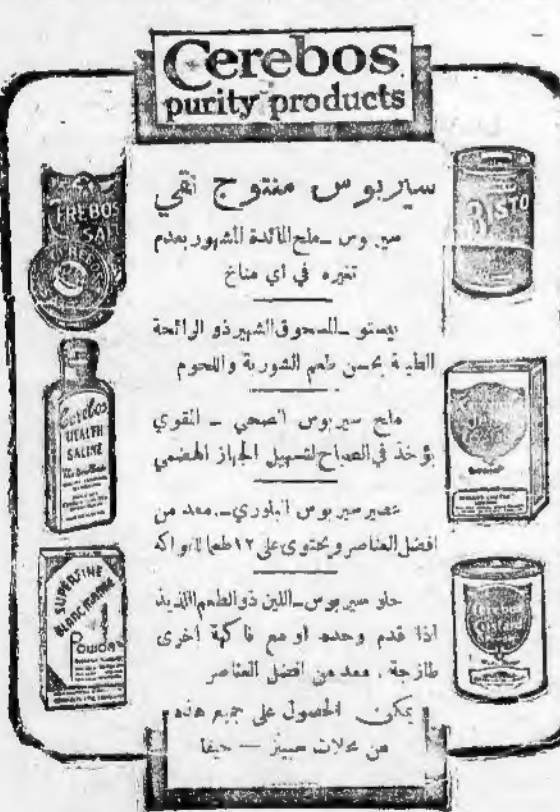 Cerebos
purity products
سيربوس منتوج نقي
سيربوس ــ ملح المائدة المشهور بعدم
تغيره في اي مناخ
بيستو ــ المسحوق الشهير ذو الرائحة
الطيبة يحسن طعم الشوربة واللحوم
ملح سيربوس الصحي ــ المقوي
يؤخذ في الصباح لتسهيل الجهاز الهضمي
عصير سيربوس البلوري ــ معد من
افضل العناصر ويحتوى على ١٢ طعما للفواكه
حلو سيربوس ــ اللبن ذو الطعم اللذيذ
اذا قدم وحده او مع فاكهة اخرى
طازجة ، معد من افضل العناصر
يمكن الحصول على جميع هذه
من محلات سبينز — حيفا
CEREBOS
SALT
CEREBOS
BISTO
Cerebos
HEALTH
SALINE
SUPERFINE
BLANCMANGE
POWDER
Cerebos
Custard